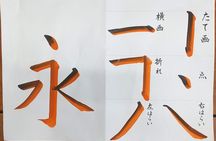 永
たて画
点
右はらい
横画
折れ
左はらい